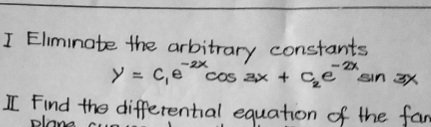 I Eliminate the arbitrary constants
y = C₁e⁻²ˣ cos 3x + C₂e⁻²ˣ sin 3x
II Find the differential equation of the fam
plane